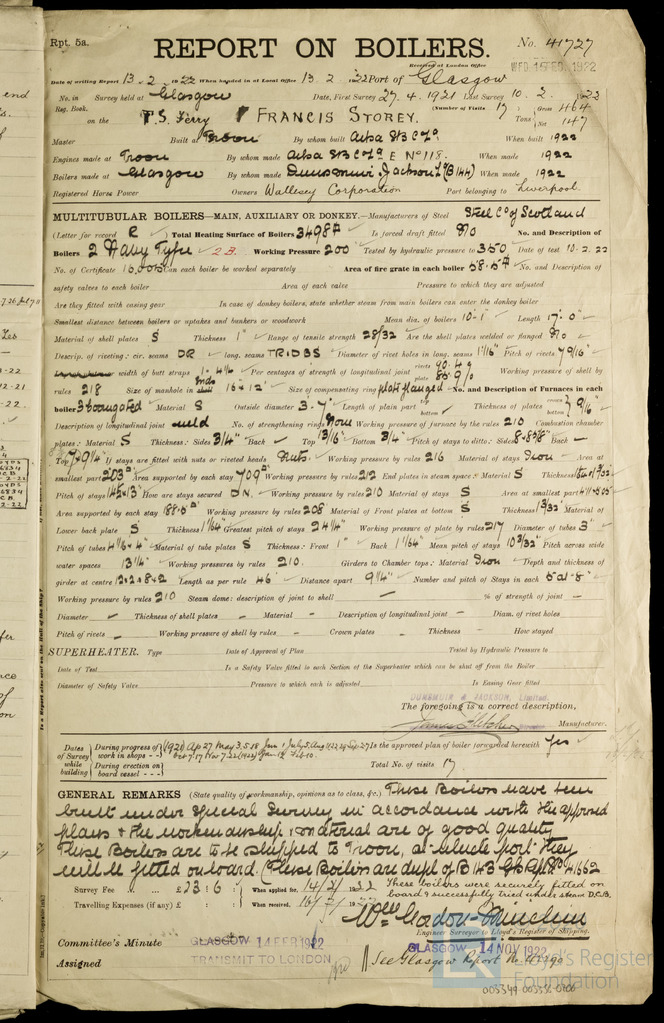 Rpt. 5a.
REPORT ON BOILERS.
No. 41727
Received at London Office WED. 15 FEB. 1922
Date of writing Report 13.2.1922 When handed in at Local Office 13.2.1922 Port of Glasgow
No. in Reg. Book. Survey held at Glasgow Date, First Survey 27.4.1921 Last Survey 10.2.1922
on the T.S. Ferry "FRANCIS STOREY. (Number of Visits 17) Tons Gross 464 Net 147
Master Built at Troon By whom built Ailsa SB Co Ld When built 1922
Engines made at Troon By whom made Ailsa SB Co Ld E No 118. When made 1922
Boilers made at Glasgow By whom made Dunsmuir & Jackson Ld (B144) When made 1922
Registered Horse Power Owners Wallasey Corporation Port belonging to Liverpool
MULTITUBULAR BOILERS—MAIN, AUXILIARY OR DONKEY.—Manufacturers of Steel Steel Co of Scotland
(Letter for record R) Total Heating Surface of Boilers 3498 Is forced draft fitted No No. and Description of
Boilers 2 Navy Type 2B. Working Pressure 200 Tested by hydraulic pressure to 350 Date of test 10.2.22
No. of Certificate Can each boiler be worked separately Area of fire grate in each boiler 58.5 No. and Description of
safety valves to each boiler Area of each valve Pressure to which they are adjusted
Are they fitted with easing gear In case of donkey boilers, state whether steam from main boilers can enter the donkey boiler
Smallest distance between boilers or uptakes and bunkers or woodwork Mean dia. of boilers 10-1" Length 17-0"
Material of shell plates S Thickness 1" Range of tensile strength 28/32 Are the shell plates welded or flanged No
Descrip. of riveting: cir. seams DR long. seams TRDBS Diameter of rivet holes in long. seams 1 1/16" Pitch of rivets 7 9/16"
width of butt straps 1-4 Per centages of strength of longitudinal joint rivets 90.4 plate 85.9 Working pressure of shell by
rules 218 Size of manhole in Ends 16 x 12" Size of compensating ring plate flanged No. and Description of Furnaces in each
boiler 3 Corrugated Material S Outside diameter 3-7" Length of plain part top bottom Thickness of plates crown bottom 9/16"
Description of longitudinal joint weld No. of strengthening rings None Working pressure of furnace by the rules 210 Combustion chamber
plates: Material S Thickness: Sides 3/4" Back — Top 13/16 Bottom 3/4" Pitch of stays to ditto: Sides 8 x 8 5/8 Back —
Top If stays are fitted with nuts or riveted heads Nuts. Working pressure by rules 216 Material of stays Iron Area at
smallest part 2.03 Area supported by each stay 70.9 Working pressure by rules 212 End plates in steam space: Material S Thickness
Pitch of stays 14.5 x 13" How are stays secured D.N. Working pressure by rules 210 Material of stays S Area at smallest part
Area supported by each stay 188.5 Working pressure by rules 208 Material of Front plates at bottom S Thickness Material of
Lower back plate S Thickness Greatest pitch of stays 24 1/4" Working pressure of plate by rules 217 Diameter of tubes 3"
Pitch of tubes Material of tube plates S Thickness: Front 1" Back Mean pitch of stays 10 3/32" Pitch across wide
water spaces 13 1/4" Working pressures by rules 210. Girders to Chamber tops: Material Iron Depth and thickness of
girder at centre Length as per rule 46" Distance apart 9 1/4" Number and pitch of Stays in each 5 at 8"
Working pressure by rules 210 Steam dome: description of joint to shell — % of strength of joint
Diameter — Thickness of shell plates — Material — Description of longitudinal joint — Diam. of rivet holes
Pitch of rivets — Working pressure of shell by rules — Crown plates — Thickness — How stayed
SUPERHEATER. Type Date of Approval of Plan Tested by Hydraulic Pressure to
Date of Test Is a Safety Valve fitted to each Section of the Superheater which can be shut off from the Boiler
Diameter of Safety Valve Pressure to which each is adjusted Is Easing Gear fitted
DUNSMUIR & JACKSON, Limited.
The foregoing is a correct description,
Manufacturer.
Dates of Survey while building
During progress of work in shops - - (1921) Ap 27 May 3.5.18 Jun 1 July 5 Is the approved plan of boiler forwarded herewith Yes
During erection on board vessel - - - Total No. of visits 17
GENERAL REMARKS (State quality of workmanship, opinions as to class, &c.) These Boilers have been
built under special survey in accordance with the approved
plans & the workmanship & material are of good quality
These Boilers are to be shipped to Troon, at which port they
will be fitted on board. (These Boilers are dupl. of B 143 Gls Rpt No 41662
Survey Fee ... ... £23:6: When applied for, 14/2/1922
These boilers were securely fitted on board & successfully tried under steam D.C.B.
Travelling Expenses (if any) £ : : When received, 16/2/1922
Engineer Surveyor to Lloyd's Register of Shipping.
Committee's Minute GLASGOW 14 FEB 1922 GLASGOW 14 NOV 1922
Assigned TRANSMIT TO LONDON See Glasgow Report No
Lloyd's Register
Foundation
003349-003358-0206